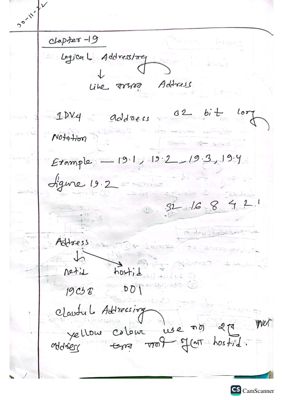 30-11-22
chapter-19
Logical Addressing
↓
Like বাসার Address
IPV4 address 32 bit long
Notation
Example — 19.1, 19.2, 19.3, 19.4
figure 19.2
32 16 8 4 2 1
Address
netid hostid
001
Classful Addressing
yellow colour use করা হয় net
address আর বাকী গুলো hostid.
CS CamScanner